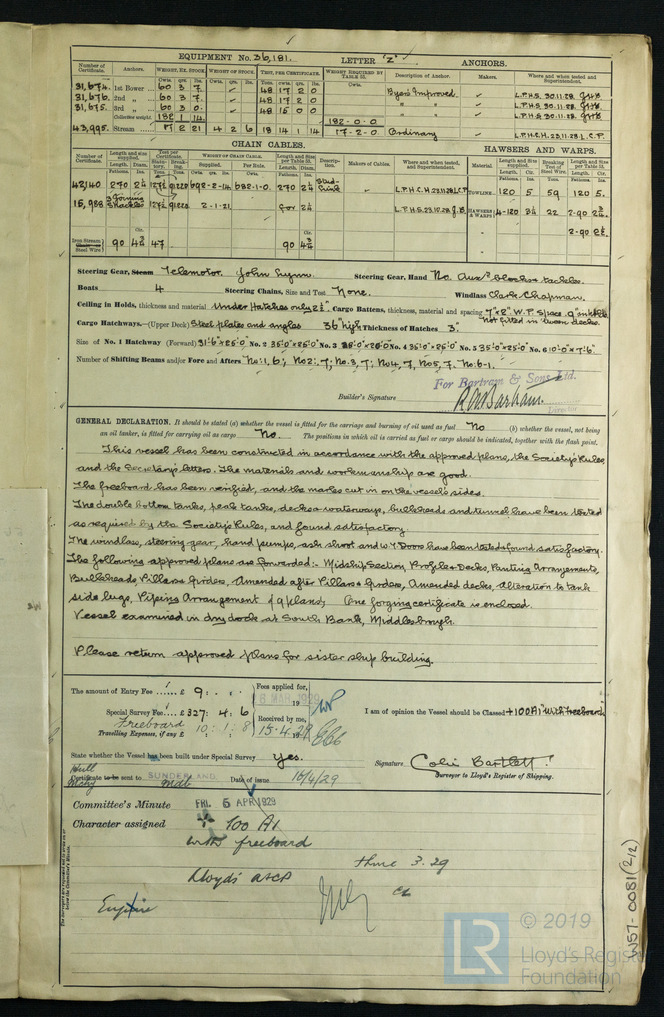 EQUIPMENT No. 36,181. LETTER "Z" ANCHORS.
Number of Certificate. Anchors. WEIGHT, EX. STOCK. WEIGHT OF STOCK. TEST, PER CERTIFICATE. WEIGHT REQUIRED BY TABLE 53. Description of Anchor. Makers. Where and when tested and Superintendent.
31,674. 1st Bower 60 3 7. 48 17 2 0 Byers Improved L.P.H.S. 30.11.28.
31,676. 2nd 60 3 7. 48 17 2 0 L.P.H.S. 30.11.28.
31,675. 3rd 60 3 0. 48 15 0 0 L.P.H.S. 30.11.28.
Collective weight 182 1 14. 182-0-0
43,995. Stream 17 2 21 4 2 6 18 14 1 14 17-2-0 Ordinary L.P.H.C.H. 23.11.28. L.C.P.
CHAIN CABLES. HAWSERS AND WARPS.
Number of Certificate. Length and size supplied. Test per Certificate. WEIGHT OF CHAIN CABLE. Length and size per Table 53. Description. Makers of Cables. Where and when tested, and Superintendent. Material Length and Size supplied. Breaking Test of Steel Wire. Length and Size per Table 53.
42140 270 2¼ 127½ 692-2-14 692-1-0. 270 2¼ Stud Link L.P.H.C.H. 23.11.28. L.C.P. TOWLINE 120 5. 59 120 5.
15,988 3 Joining Shackles 127½ 2-1-21 for 2¼ L.P.H.S. HAWSERS & WARPS 4-120 22 2-90
2-90
Iron Stream or Steel Wire 90 47 90
Steering Gear, Steam Telemotor. John Lynn. Steering Gear, Hand No. Auxy blocks & tackles.
Boats 4 Steering Chains, Size and Test None. Windlass Clarke Chapman.
Ceiling in Holds, thickness and material Under Hatches only 2½" Cargo Battens, thickness, material and spacing 7"x2" W.P. Space 9" in holds
Not fitted in tween decks.
Cargo Hatchways.—(Upper Deck) Steel plates and angles 36" high Thickness of Hatches 3"
Size of No. 1 Hatchway (Forward) 31'-6"x25'-0" No. 2 35'-0"x25'-0" No. 3 No. 4 35'-0"x25'-0" No. 5 35'-0"x25'-0" No. 6 10'-0"x7'-6"
Number of Shifting Beams and/or Fore and Afters No:1, 6; No2:, 7; No.3, 7; No4, 7, No5, 7. No.6-1.
For Bartram & Sons Ltd.
Builder's Signature R.A. Bartram.
Director
GENERAL DECLARATION. It should be stated (a) whether the vessel is fitted for the carriage and burning of oil used as fuel No (b) whether the vessel, not being
an oil tanker, is fitted for carrying oil as cargo No. The positions in which oil is carried as fuel or cargo should be indicated, together with the flash point.
This vessel has been constructed in accordance with the approved plans, the Society's Rules
and the Secretary's letters. The materials and workmanship are good.
The freeboard has been verified, and the marks cut in on the vessel's sides.
The double bottom tanks, peak tanks, decks & waterways, bulkheads and tunnel have been tested
as required by the Society's Rules, and found satisfactory.
The windlass, steering gear, hand pumps, ash shoot and W.T. Doors have been tested & found satisfactory.
The following approved plans are forwarded:- Midship Section, Profile & Decks, Panting Arrangements,
Bulkheads, Pillars & Girders, Amended after Pillars & Girders, Amended decks, Alteration to tank
side lugs, Piping Arrangement (9 plans), One forging certificate is enclosed.
Vessel examined in dry dock at South Bank, Middlesbrough.
Please return approved plans for sister ship building.
The amount of Entry Fee £ 9 : . : Fees applied for,
MAR. 1929
Special Survey Fee £327 : 4 : 6 I am of opinion the Vessel should be Classed +100A1 "With Freeboard
Freeboard 10 : 1 : 8 Received by me,
Travelling Expenses, if any £ 15.4.29
State whether the Vessel has been built under Special Survey Yes. Signature Colin Bartlett.
Surveyor to Lloyd's Register of Shipping.
Certificate to be sent to SUNDERLAND. Mdb Date of issue 16/4/29
Committee's Minute FRI. 5 APR 1929
Character assigned + 100 A1
with freeboard
Lloyd's A&CP 3.29
W57-0081 (2/2)
© 2019
LR
Lloyd's Register
Foundation